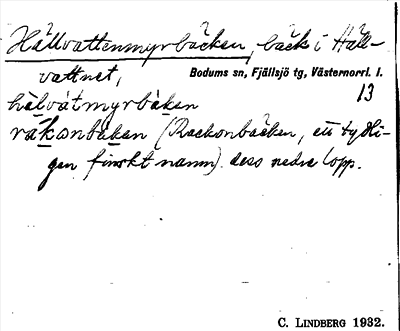 Hällvattenmyrbäcken, bäck i Häll-
vattnet,
Bodums sn, Fjällsjö tg, Västernorrl. l.
13
hälvátmyrbäken
räkonbäken (Rackonbäcken, ett tydli-
gen finskt namn) dess nedre lopp.
C. LINDBERG 1932.